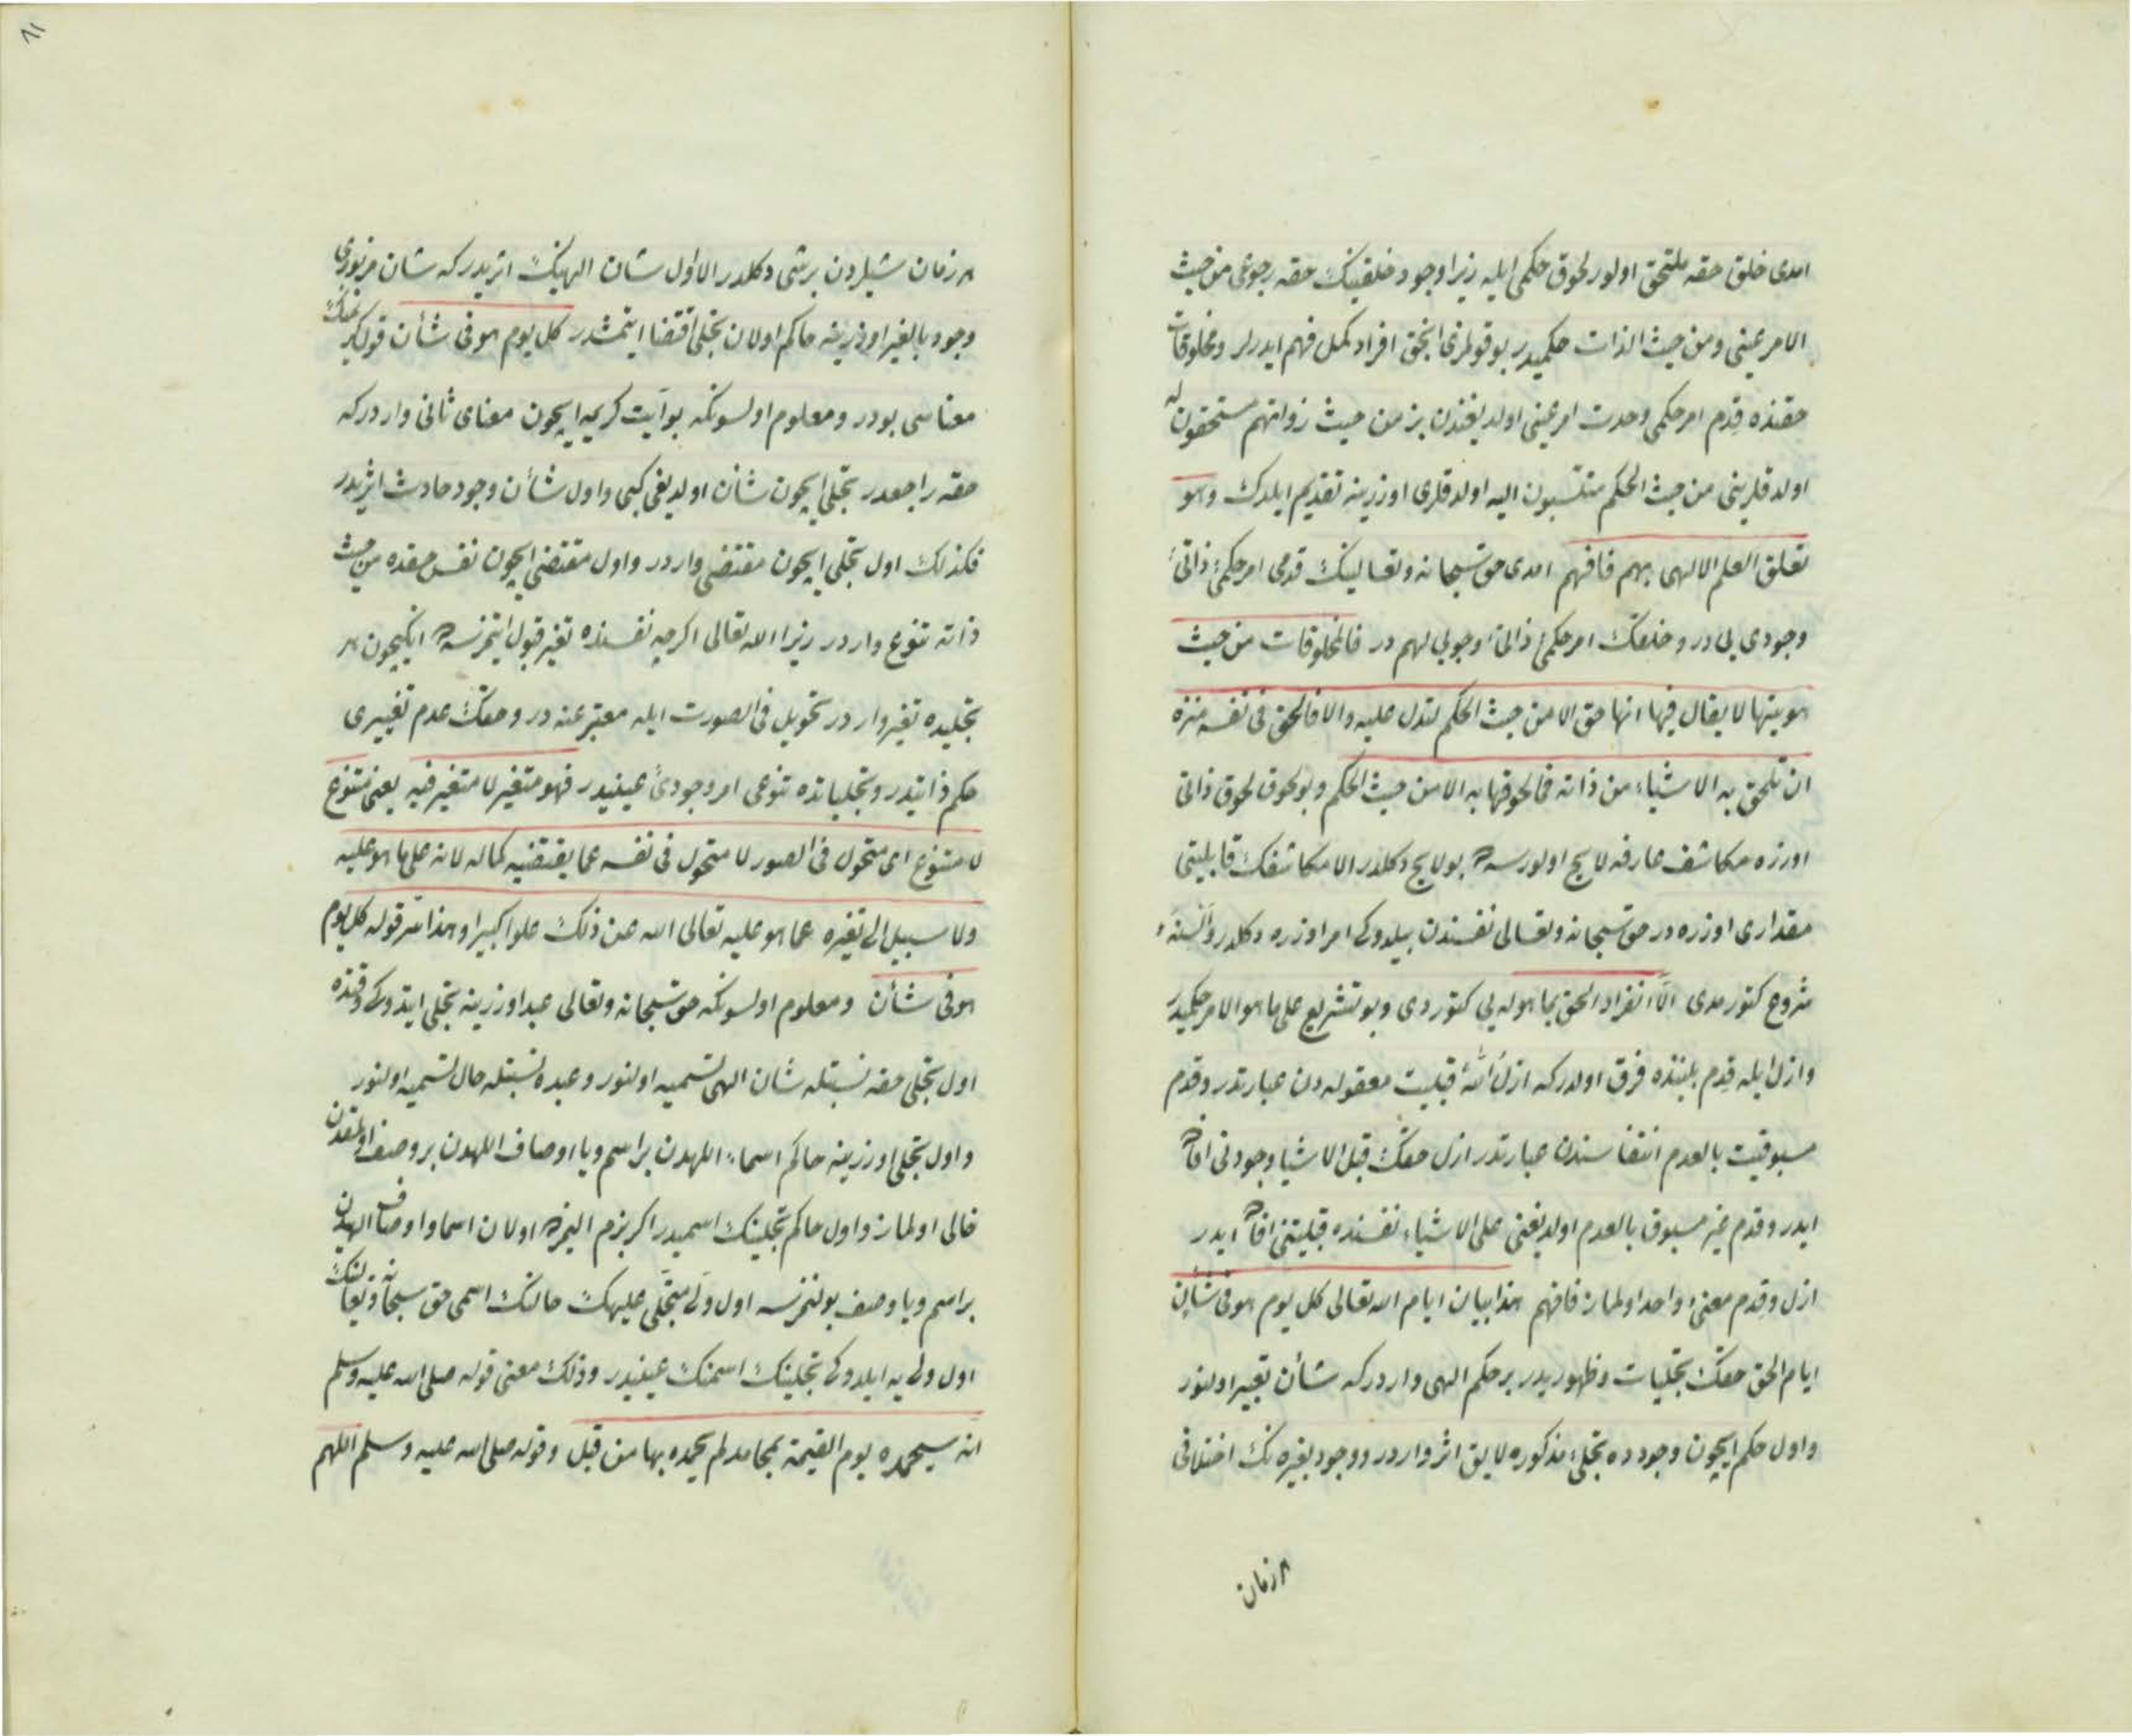 امدی خلق حقه ملتحق اولور لحوق حکمی ایله زیرا وجود خلقینک حقه رجوعی من حیث
الامر عینی و من حیث الذات حکمیدر بو قولمزی انجق افراد کمل فهم ایدرلر و مخلوقات
حقنده قدم امر حکمی وحدت امر عینی اولدیغندن بز من حیث ذواتهم مستحقون له
اولدقلرینی من حیث الحکم منتسبون الیه اولدقلری اوزرینه تقدیم ایلدک وهو
تعلق العلم الالهی بهم فافهم امدی حق سبحانه وتعالینک قدمی امر حکمئ ذاتئ
وجودی یی در و خلقک امر حکمئ ذاتئ وجوبی لهم در فالمخلوقات من حیث
هویتها لا یقال فیها انها حق الا من حیث الحکم لتدل علیه والا فالحق فی نفسه منزه
ان تلحق به الاشیاء من ذاته فما لحوقها به الا من حیث الحکم و بو لحوق لحوق ذاتی
اوزره مکاشف عارفه لایح اولورسه ده بو لایح دکلدر الا مکاشفک قابلیتی
مقداری اوزره در حق سبحانه وتعالی نفسندن بیلدوکی امر اوزره دکلدر والسنهٔ
شروح کتورمدی الا انفراد الحق بما هو له یی کتوردی و بو تشریع علی ما هو الامر حکمیدر
و ازل ایله قدم بیننده فرق اولدر که ازل الله قبلیت معقوله دن عبارتدر و قدم
مسبوقیت بالعدم انتفاسندن عبارتدر ازل حقک قبل الاشیا وجودنی افاده
ایدر و قدم غیر مسبوق بالعدم اولدیغنی علی الاشیاء نفسنده قبلیتنی افاده ایدر
ازل و قدم معنئ واحد اولماز فافهم هذا بیان ایام الله تعالی کل یوم هو فی شأن
ایام الحق حقک تجلیات و ظهوریدر بر حکم الهی واردر که شأن تعبیر اولنور
و اول حکم ایچون وجوده تجلئ مذکوره لایق اثر واردر و وجود بغیره نک اختلافی
هر زمان
هر زمان شیلردن بر شی دکلدر الا اول شان الهینک اثریدر که شان مزبوری
وجود بالغیر اوزرینه حاکم اولان تجلی اقتضا ایتمشدر کل یوم هو فی شأن قول کریمنک
معناسی بودر و معلوم اولسونکه بو آیت کریمه ایچون معنای ثانی واردر که
حقه راجعدر تجلی ایچون شأن اولدیغی کبی و اول شأن وجود حادث اثریدر
فکذلک اول تجلی ایچون مقتضی واردر و اول مقتضی ایچون نفس حقده من حیث
ذاته تنوع واردر زیرا الله تعالی اکرچه نفسنده تغیر قبول ایتمزسه ده انکیچون هر
تجلیده تغیر واردر تحویل فی الصورت ایله معبر عنه در و حقک عدم تغییری
حکم ذاتیدر و تجلیاتده تنوعی امر وجودئ عینیدر فهو متغیر لا متغیر فیه یعنی متنوع
لا متنوع ای متحول فی الصور لا متحول فی نفسه عما یقتضیه کماله لانه علی ما هو علیه
ولا سبیل الی تغیره عما هو علیه تعالی الله عن ذلک علوا کبیرا و هذا سر قوله کل یوم
هو فی شأن و معلوم اولسونکه حق سبحانه وتعالی عبد اوزرینه تجلی ایتدوکی وقتده
اول تجلی حقه نسبتله شان الهی تسمیه اولنور و عبده نسبتله حال تسمیه اولنور
و اول تجلی اوزرینه حاکم اسماء اللهدن بر اسم ویا اوصاف اللهدن بر وصف اولمقدن
خالی اولماز و اول حاکم تجلینک اسمیدر اکر بزم الیمزده اولان اسما و اوصاف الهیدن
بر اسم ویا وصف بولنمزسه اول ولئ متجلی علیهک حالنک اسمی حق سبحانه وتعالینک
اول ولی یه ایلدوکی تجلینک اسمنک عینیدر و ذلک معنی قوله صلی الله علیه وسلم
انه سیحمده یوم القیمة بمحامد لم یحمده بها من قبل و قوله صلی الله علیه وسلم اللهم